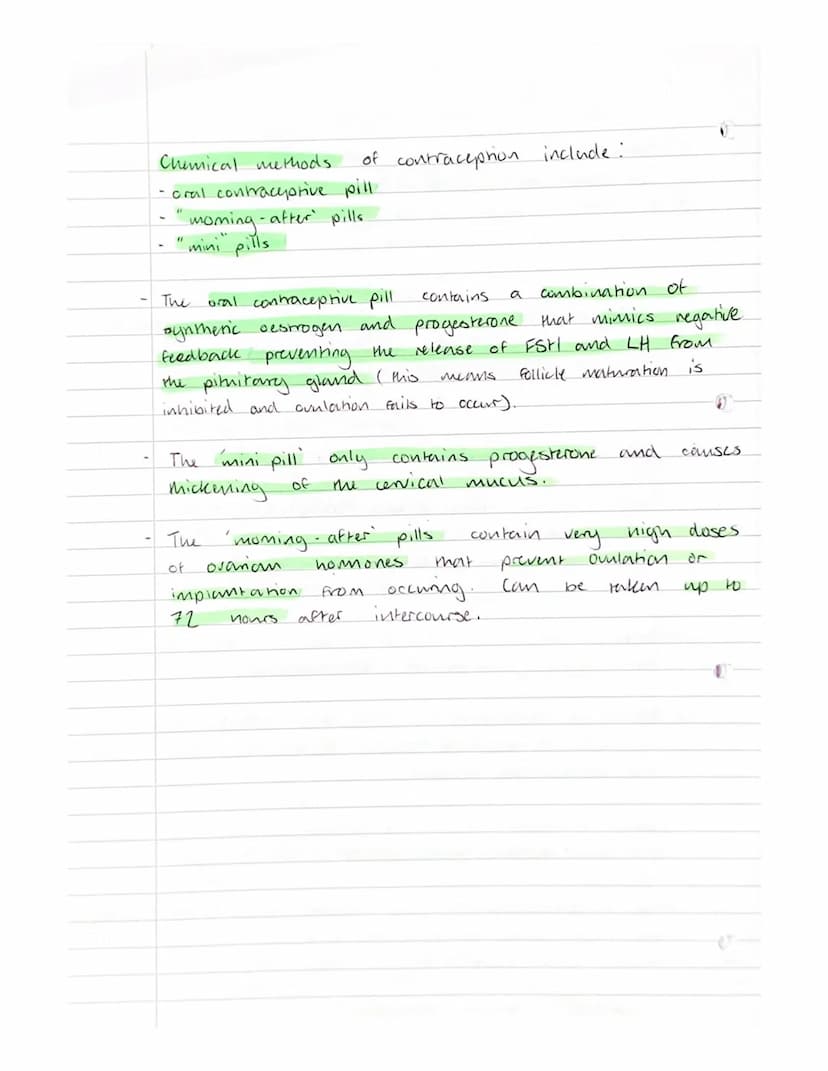 Chemical methods of contraception include:
- oral contraceptive pill
- "morning-after" pills
- "mini" pills
- The oral contraceptive pill contains a combination of
synthetic oestrogen and progesterone that mimics negative
feedback preventing the release of FSH and LH from
the pituitary gland (this means follicle maturation is
inhibited and ovulation fails to occur).
- The 'mini pill' only contains progesterone and causes
thickening of the cervical mucus.
- The 'morning-after' pills contain very high doses
of ovarian hormones that prevent ovulation or
implantation from occuring. Can be taken up to
72 hours after intercourse.